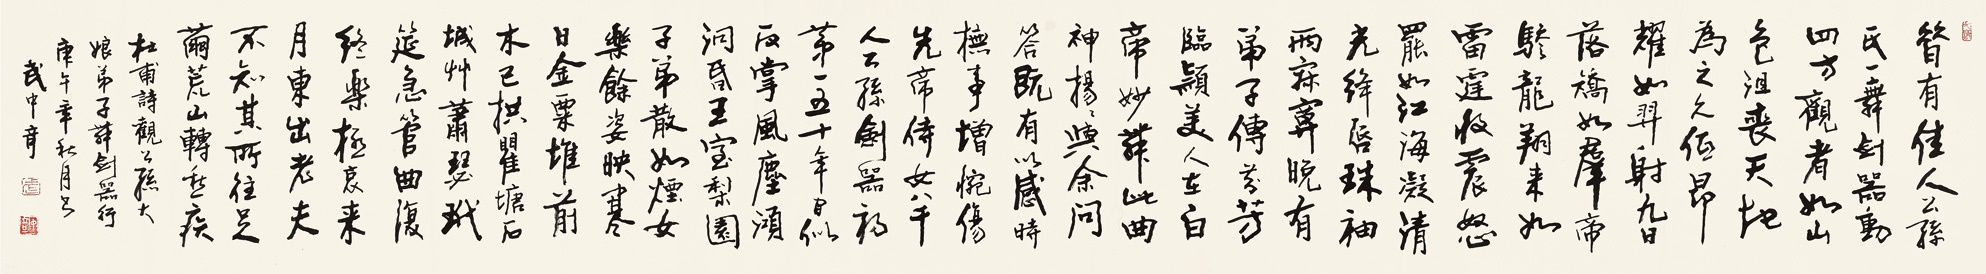 昔有佳人公孫
氏一舞劍器動
四方觀者如山
色沮喪天地
為之久低昂
㸌如羿射九日
落矯如群帝
驂龍翔来如
雷霆收震怒
罷如江海凝清
光絳唇珠袖
兩寂寞晚有
弟子傳芬芳
臨潁美人在白
帝妙舞此曲
神揚揚與余問
答既有以感時
撫事增惋傷
先帝侍女八千
人公孫劍器初
第一五十年間似
反掌風塵澒
洞昏王室梨園
子弟散如煙女
樂餘姿映寒
日金粟堆前
木已拱瞿塘石
城艸蕭瑟玳
筵急管曲復
終樂極哀来
月東出老夫
不知其所往足
繭荒山轉愁疾
杜甫詩觀公孫大
娘弟子舞劍器行
庚午年秋月書
武中奇